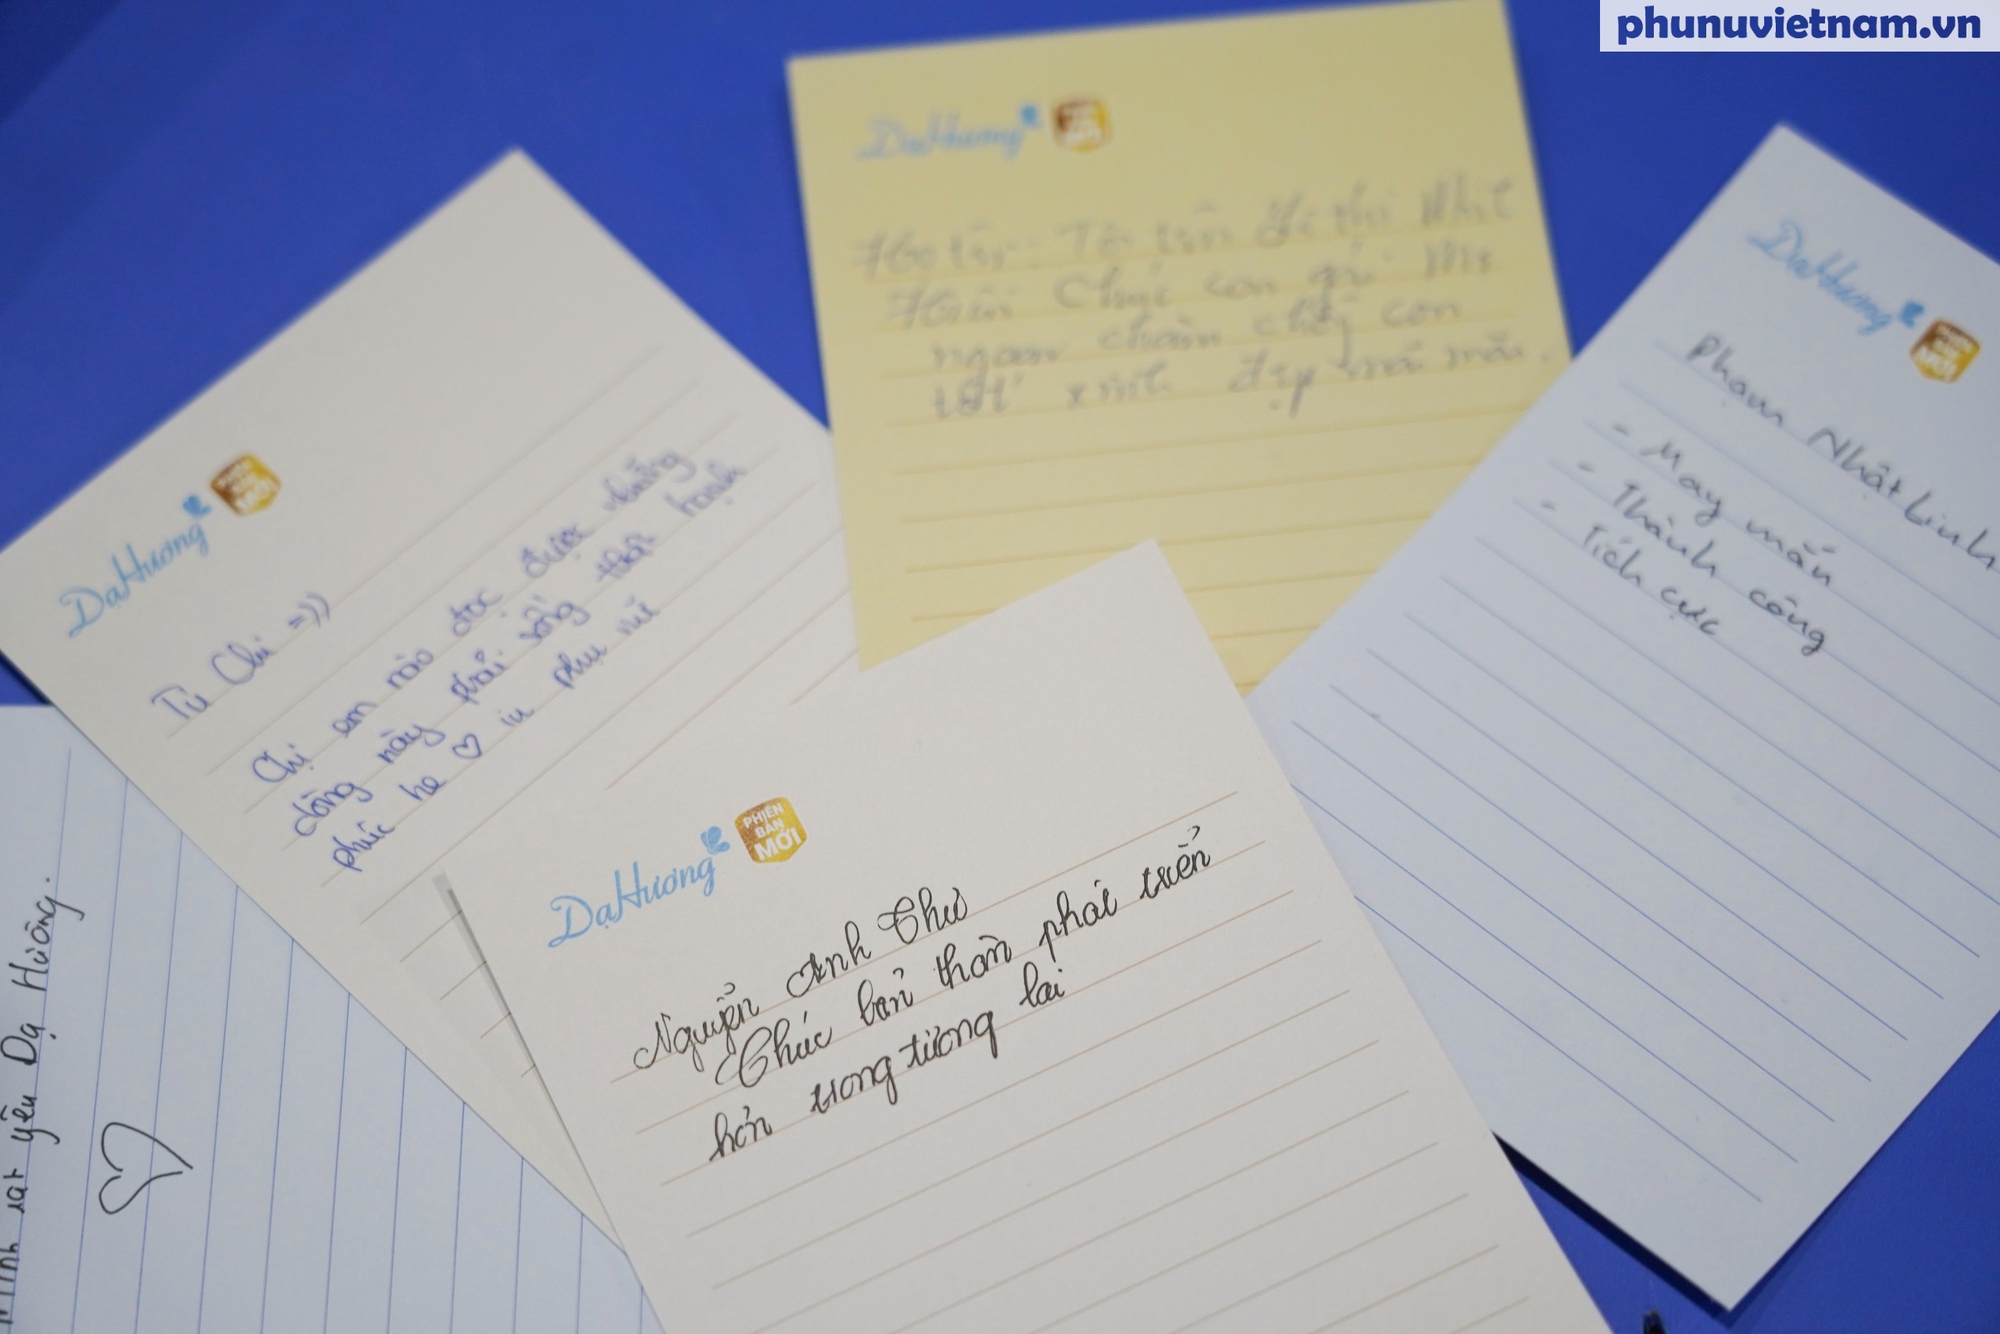 phunuvietnam.vn
DạHương
Chúc con gái
ngoan chăm
tốt xinh đẹp
DạHương
PHIÊN BẢN MỚI
Phạm Nhật Linh
- May mắn
- Thành công
- Tích cực
DạHương
PHIÊN BẢN MỚI
Tú Chi =))
Chị em nào đọc được những
dòng này phải sống thật hạnh
phúc he ♡ iu phụ nữ
DạHương
PHIÊN
BẢN
MỚI
Nguyễn Anh Thư
Chúc bản thân phát triển
hơn trong tương lai
Mình rất yêu Dạ Hương.